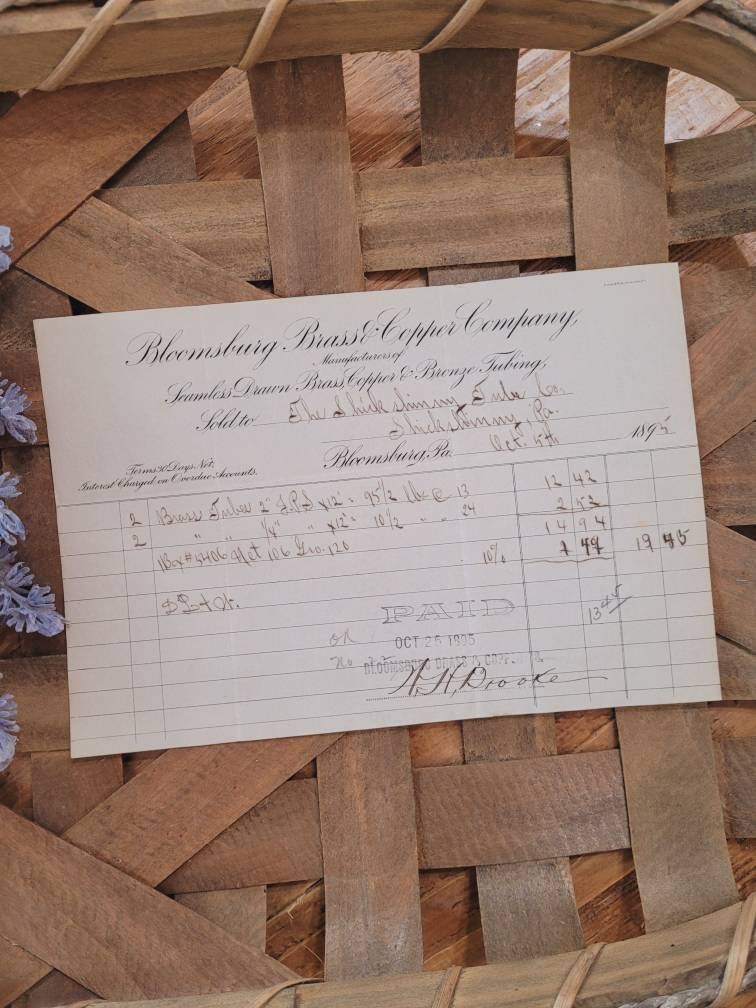 Bloomsburg Brass & Copper Company,
Manufacturers of
Seamless Drawn Brass, Copper & Bronze Tubing,
Sold to The Shickshinny Tube Co.
Shickshinny, Pa.
Bloomsburg, Pa. Oct. 5th 1895
Terms 30 Days Net,
Interest Charged on Overdue Accounts.
2 Brass Tubes 2" I.P.S x 12' = 95 1/2 lbs @ 13 12 42
2 " " 1/4" " x 12' = 10 1/2 " " 24 2 52
14 94
Box # 5406 Net 106 Gro. 120 10% 1 49
PAID
OCT 26 1895
BLOOMSBURG BRASS & COPP. CO.
13 45